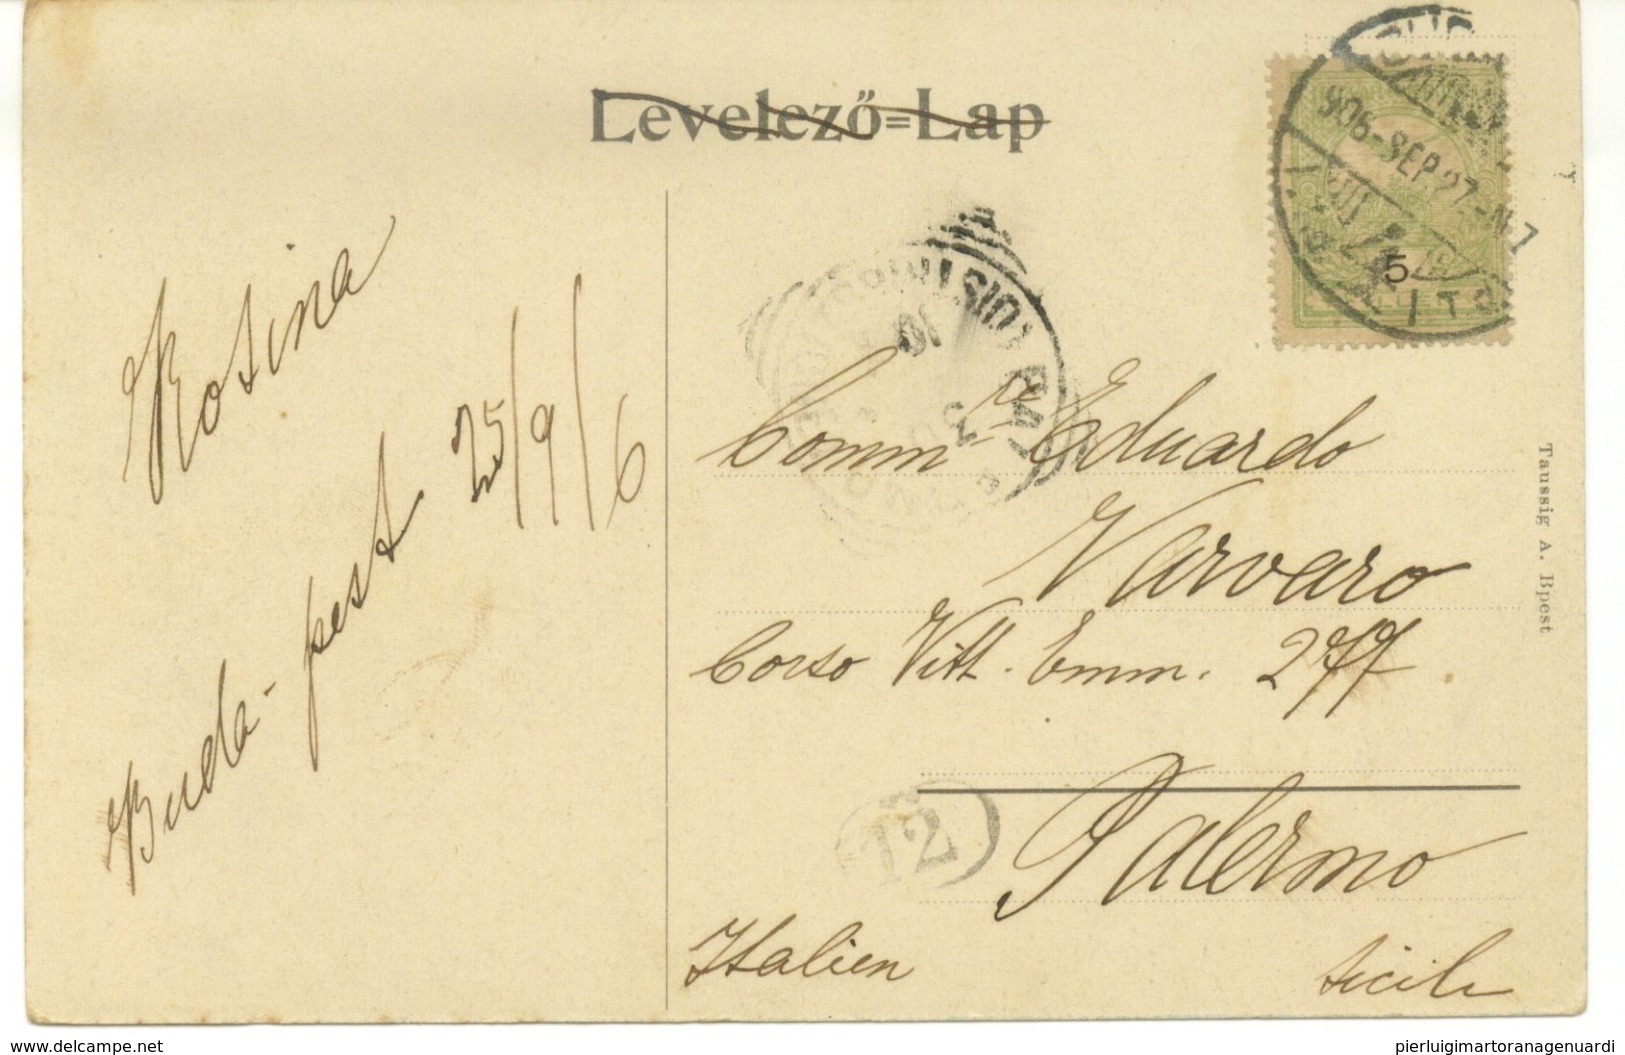 Levelező=Lap
906-SEP.27-N.7
5
Rosina
Buda-pest 25/9/6
Commre Eduardo
Varvaro
Corso Vitt. Emm. 277
Palermo
12
Italien
Taussig A. Bpest
www.delcampe.net
pierluigimartoranagenuardi